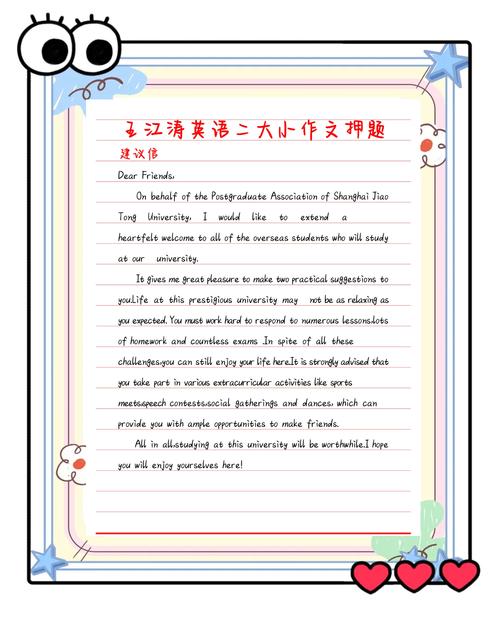 王江涛英语二大小作文押题
建议信
Dear Friends,
On behalf of the Postgraduate Association of Shanghai Jiao
Tong University, I would like to extend a
heartfelt welcome to all of the overseas students who will study
at our university.
It gives me great pleasure to make two practical suggestions to
you.Life at this prestigious university may not be as relaxing as
you expected. You must work hard to respond to numerous lessons,lots
of homework and countless exams .In spite of all these
challenges,you can still enjoy your life here.It is strongly advised that
you take part in various extracurricular activities like sports
meets,speech contests,social gatherings and dances, which can
provide you with ample opportunities to make friends.
All in all,studying at this university will be worthwhile.I hope
you will enjoy yourselves here!